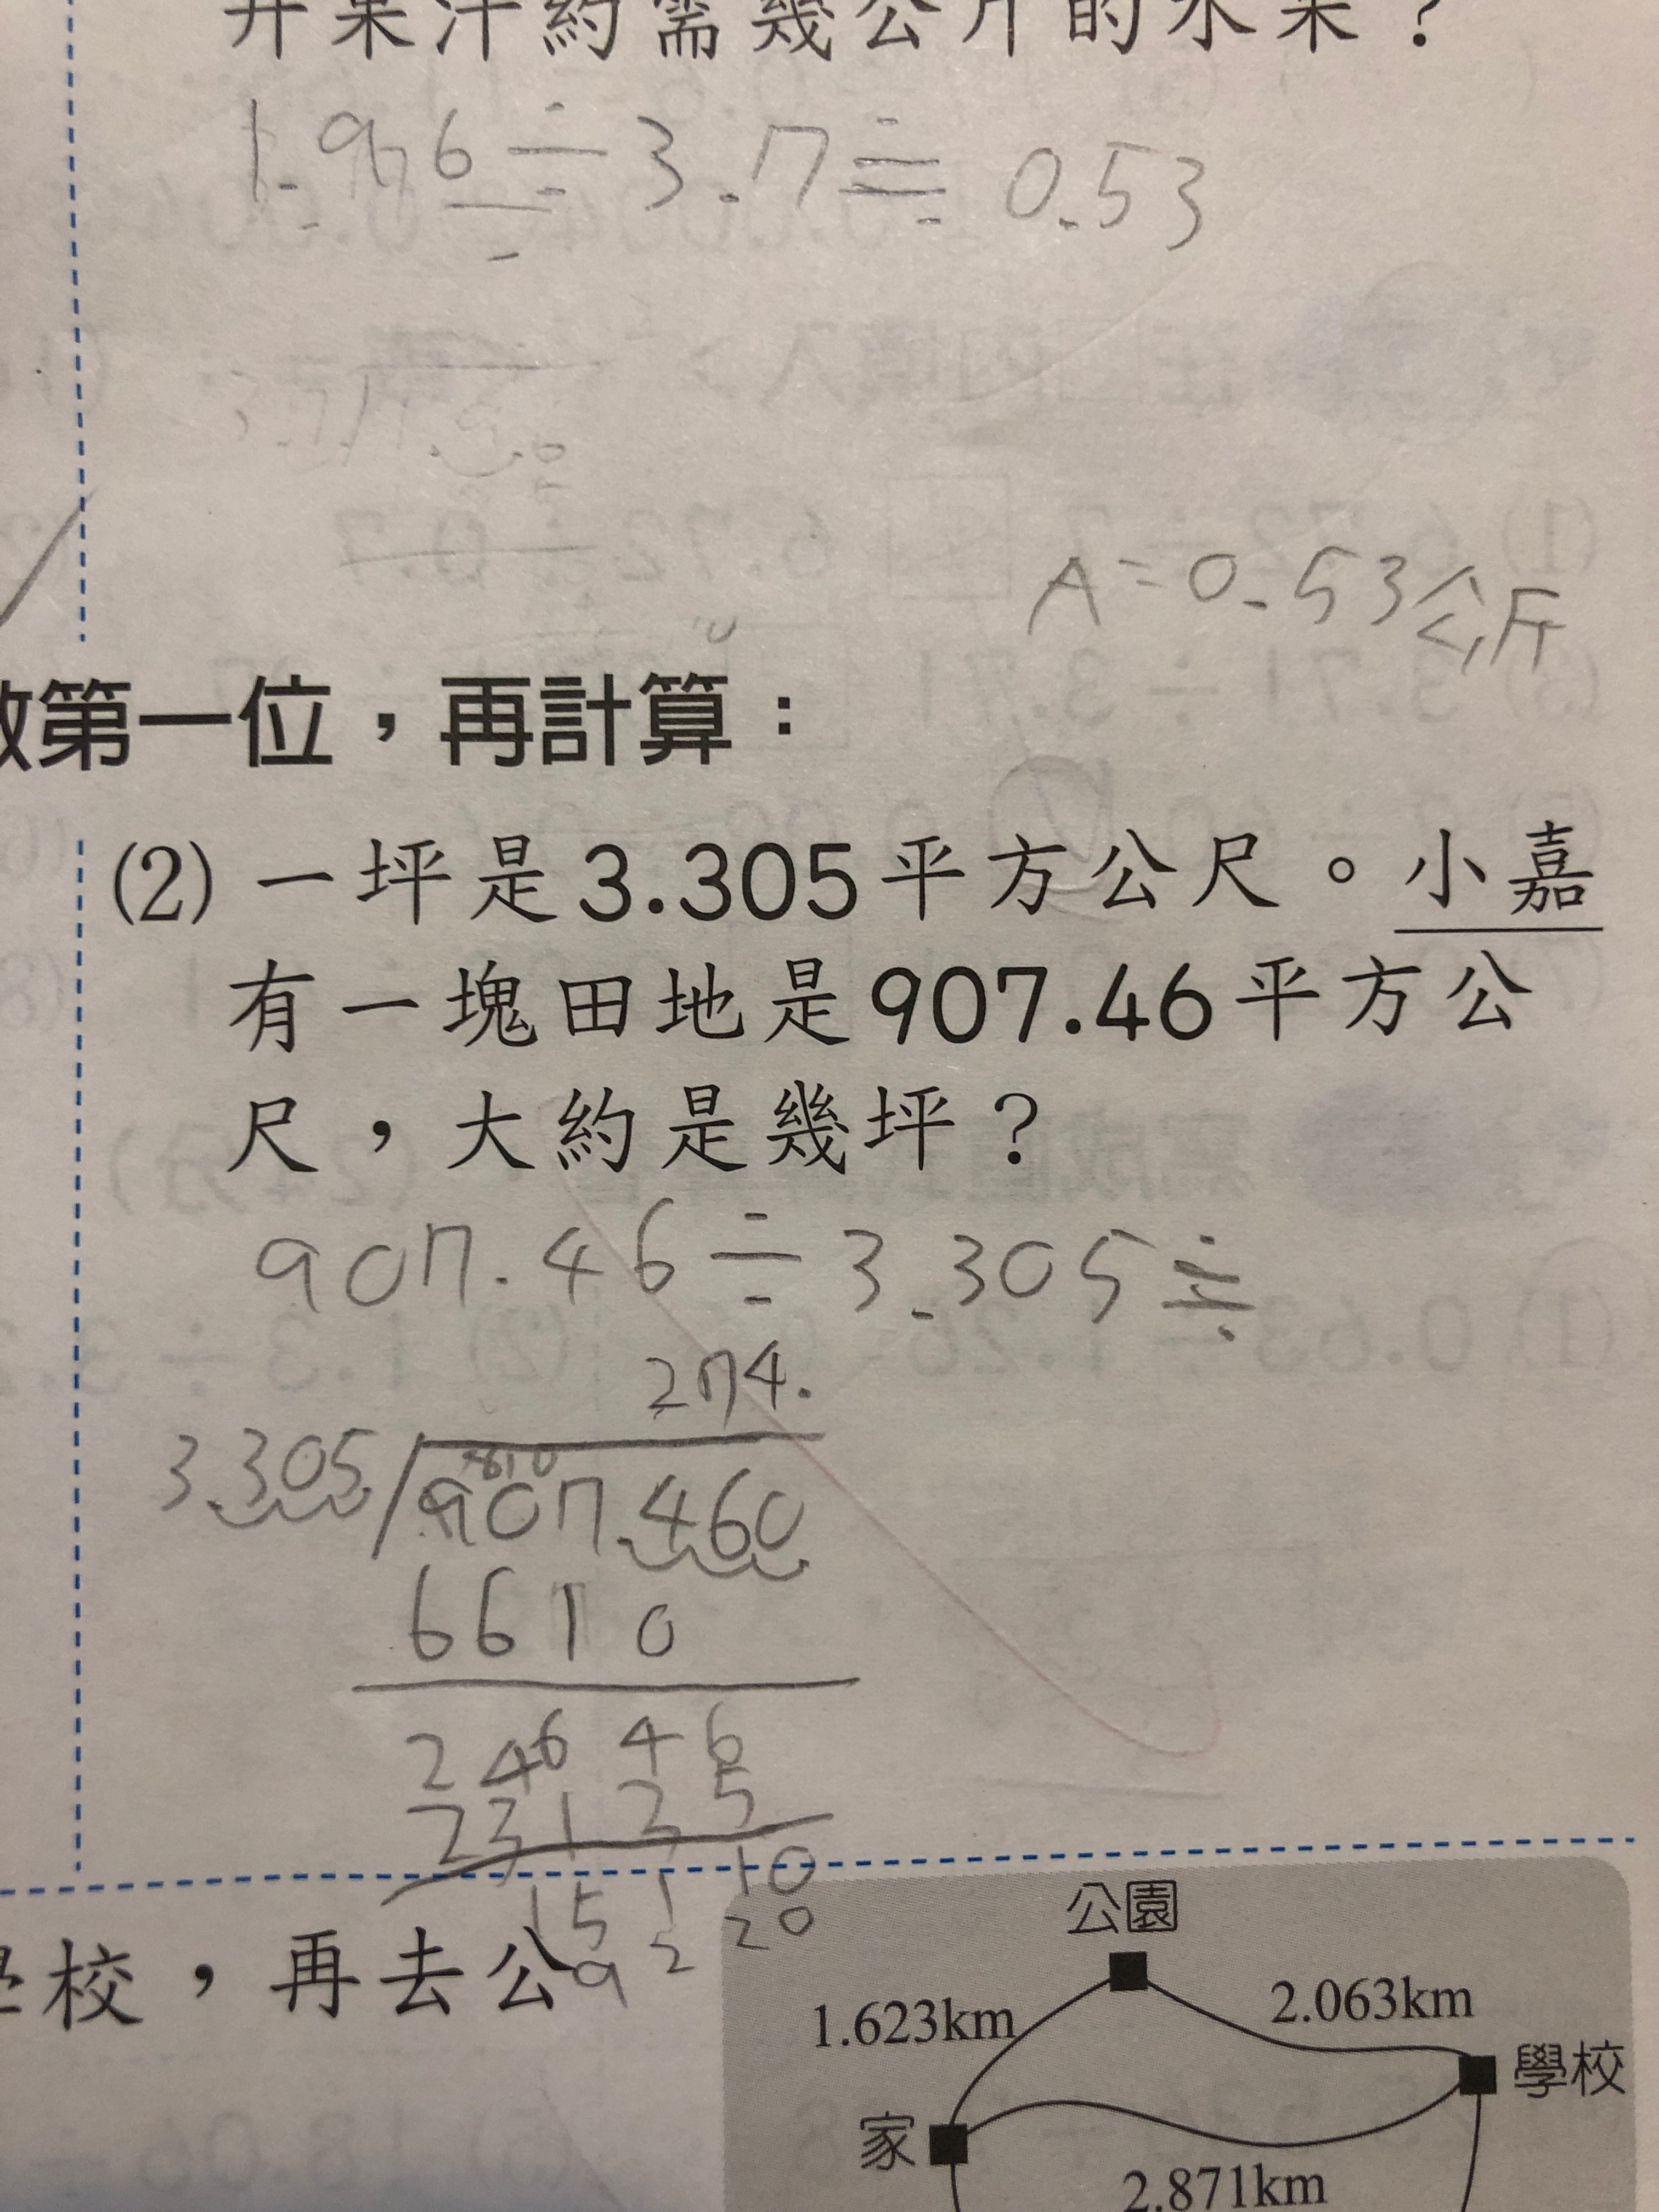 升果汁約需幾公斤的水果？
1.96÷3.7≒0.53
A=0.53公斤
數第一位，再計算：
(2)一坪是3.305平方公尺。小嘉
有一塊田地是907.46平方公
尺，大約是幾坪？
907.46÷3.305≒
274.
3.305
907.460
6610
24646
23125
15110
2 20
學校，再去公
公園
1.623km
2.063km
學校
家
2.871km